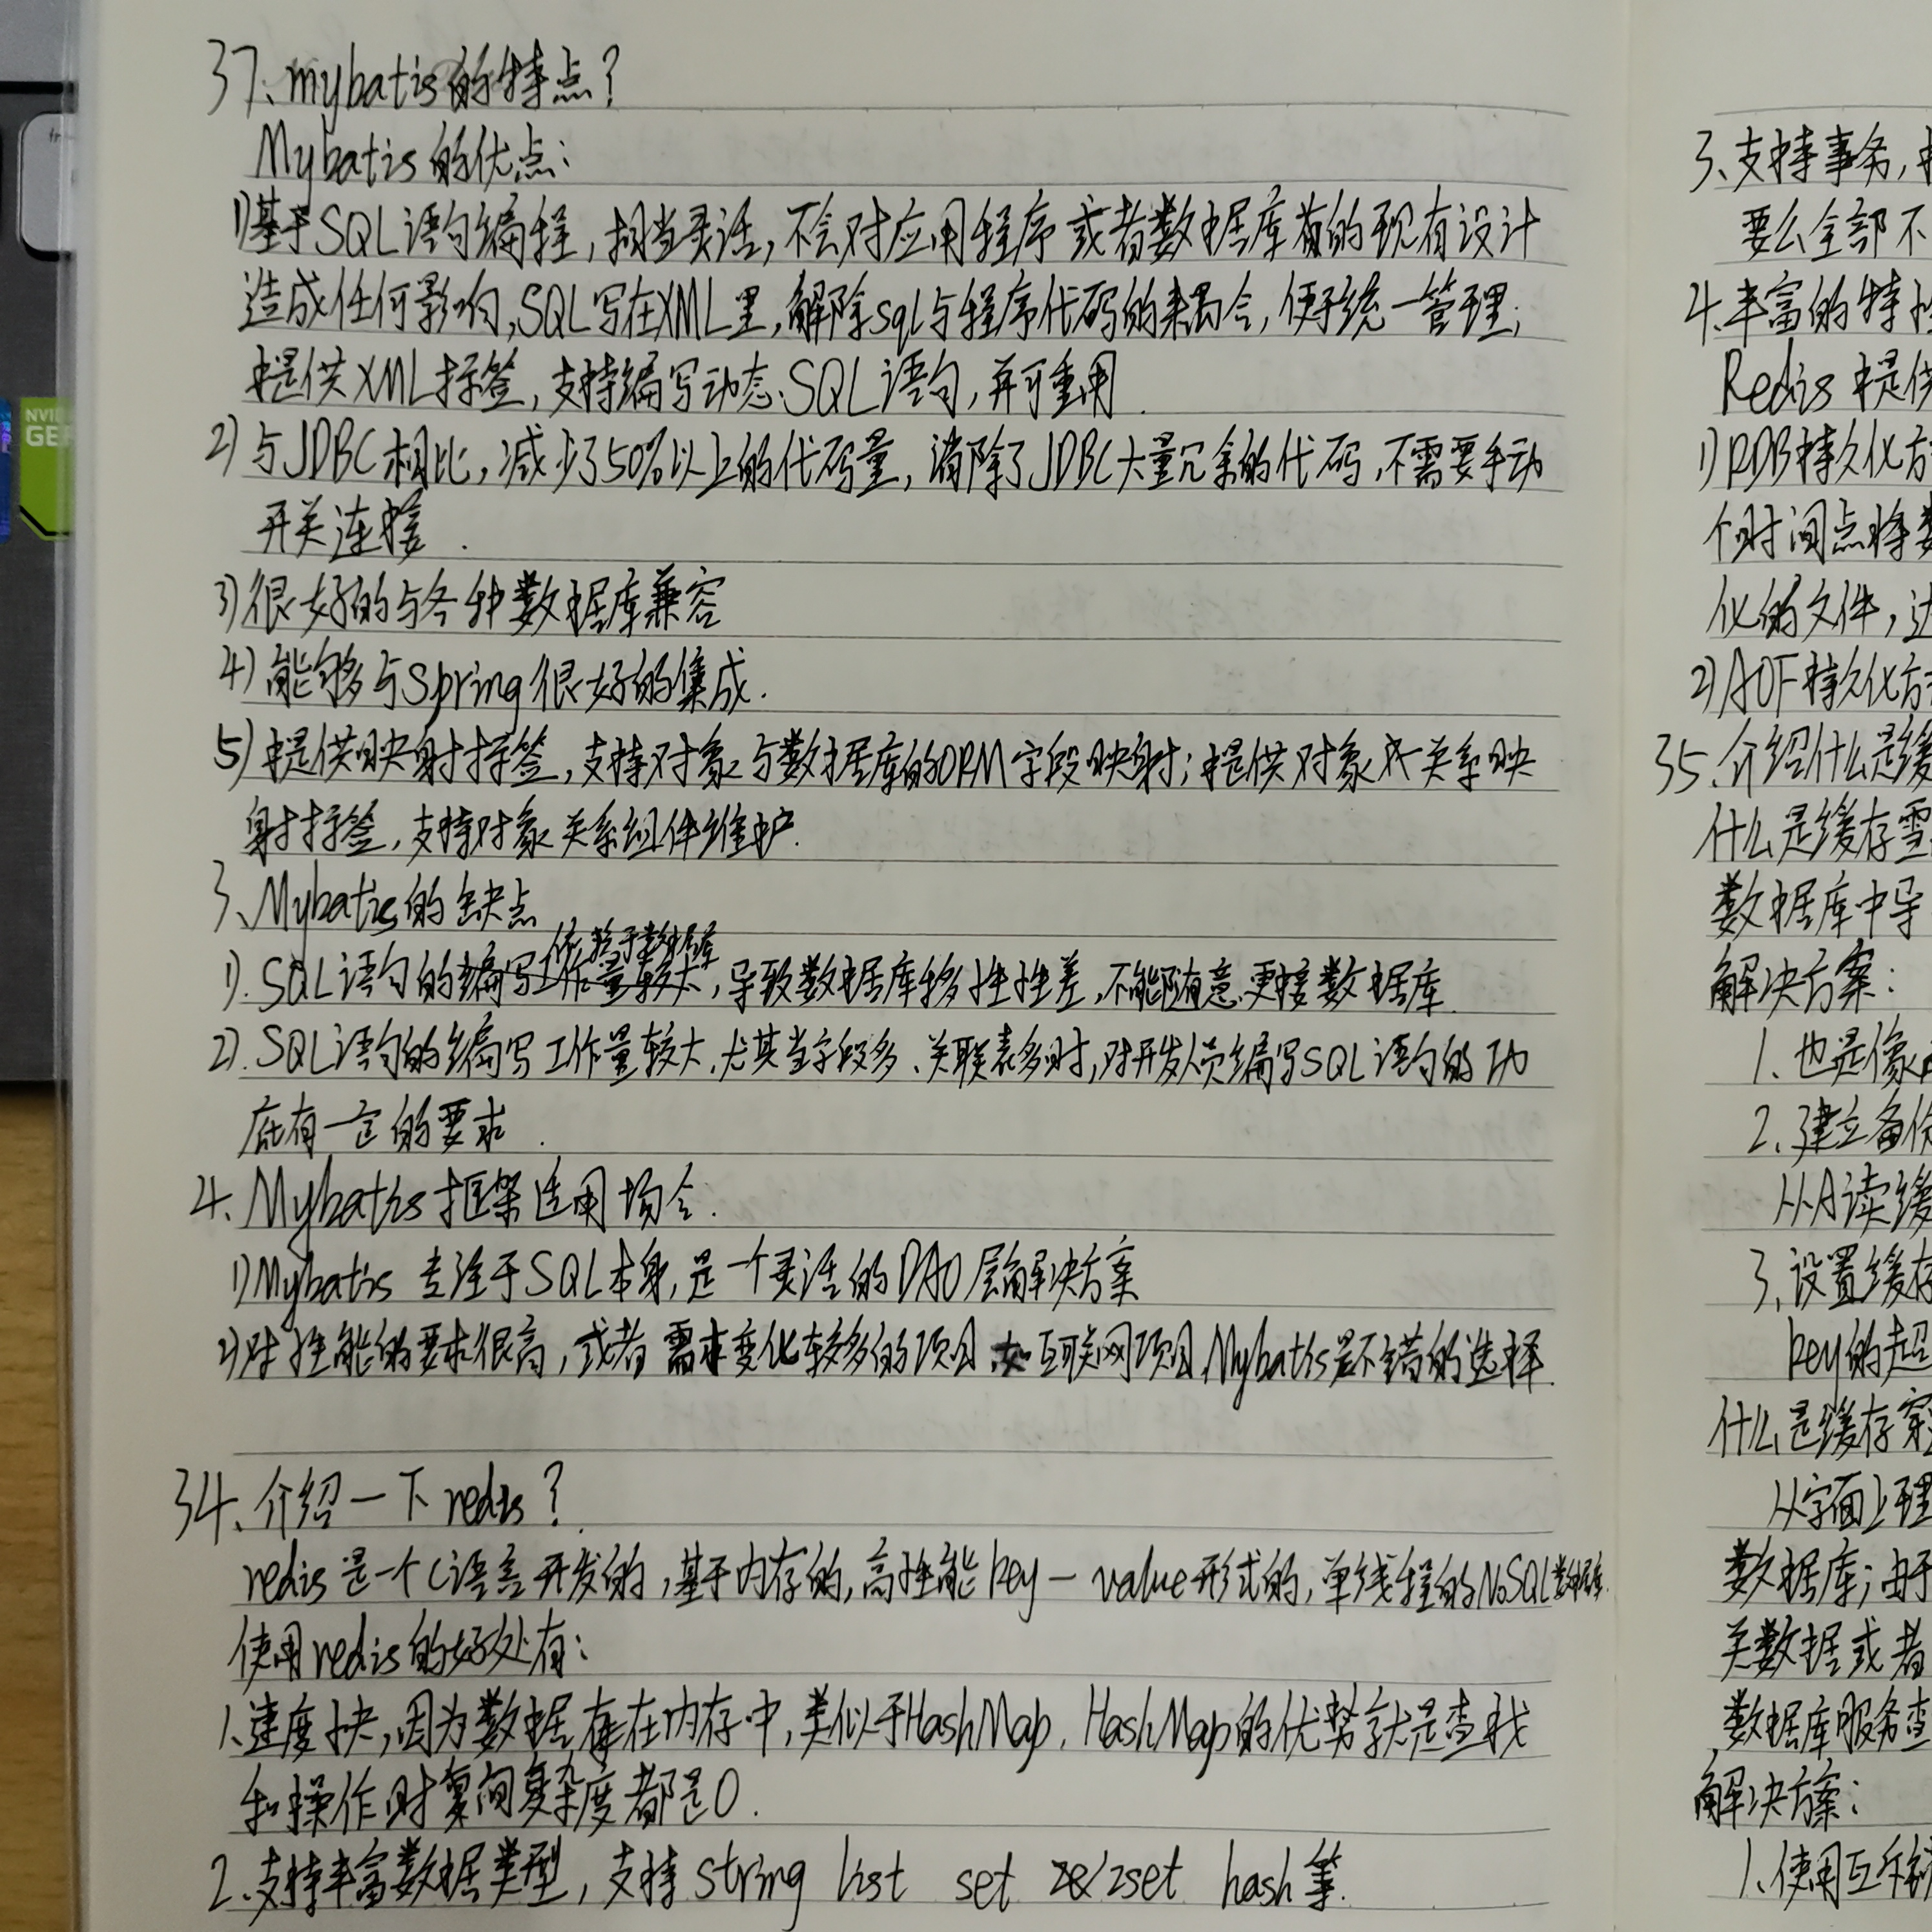 37、mybatis的特点?
Mybatis的优点:
1)基于SQL语句编程,相当灵活,不会对应用程序或者数据库的现有设计
造成任何影响,SQL写在XML里,解除sql与程序代码的耦合,便于统一管理;
提供XML标签,支持编写动态SQL语句,并可重用.
2)与JDBC相比,减少了50%以上的代码量,消除了JDBC大量冗余的代码,不需要手动
开关连接.
3)很好的与各种数据库兼容
4)能够与Spring很好的集成.
5)提供映射标签,支持对象与数据库的ORM字段映射;提供对象关系映
射标签,支持对象关系组件维护.
3、Mybatis的缺点
依赖于数据库
1).SQL语句的编写工作量较大,导致数据库移植性差,不能随意更换数据库.
2).SQL语句的编写工作量较大,尤其当字段多、关联表多时,对开发人员编写SQL语句的功
底有一定的要求.
4、Mybatis框架适用场合:
1)Mybatis专注于SQL本身,是一个灵活的DAO层解决方案
2)对性能的要求很高,或者需求变化较多的项目,如互联网项目,Mybatis是不错的选择.
34、介绍一下redis?
redis是一个C语言开发的,基于内存的,高性能key-value形式的,单线程的NoSQL数据库.
使用redis的好处有:
1、速度快,因为数据存在内存中,类似于HashMap,HashMap的优势就是查找
和操作时间复杂度都是O.
2、支持丰富数据类型,支持string list set zset hash等.
3、支持事务,
要么全部不
4、丰富的特性
Redis提供
1)RDB持久化方
个时间点将数
化的文件,达
2)AOF持久化方
35、介绍什么是缓
什么是缓存雪
数据库中导
解决方案:
1、也是像
2、建立备份
从A读缓
3、设置缓存
key的超
什么是缓存穿
从字面上理
数据库;由于
关数据或者
数据库服务查
解决方案:
1、使用互斥锁
NVID
GEF